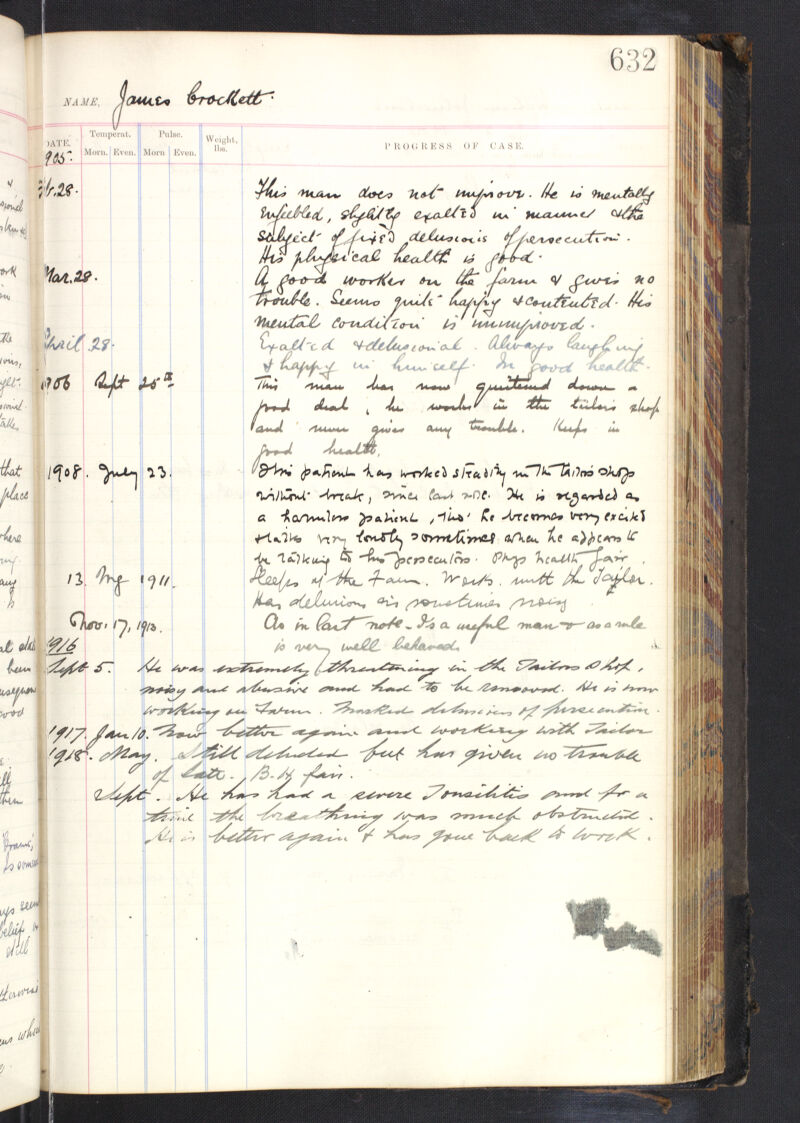 632
NAME, James Crockett.
DATE. Temperat. Pulse. Weight, lbs. PROGRESS OF CASE.
Morn. Even. Morn Even.
905.
Feb. 28. This man does not improve. He is mentally
enfeebled, slightly exalted in manner & the
subject of fixed delusions of persecution.
His physical health is good.
Mar. 28. A good worker on the farm & gives no
trouble. Seems quite happy & contented. His
mental condition is unimproved.
April 28. Exalted & delusional. Always laughing
& happy in himself. In good health.
1906 Sept 25th This man has now quietened down a
good deal, he works in the tailors shop
and never gives any trouble. Keeps in
good health.
1908. July 23. This patient has worked steadily in the tailors shops
without break, since last note. He is regarded as
a harmless patient, tho' he becomes very excited
& talks very loudly sometimes when he appears to
be talking to his persecutors. Phys health fair.
13. Aug 1911. Sleeps at the Farm. Works with the Taylor.
Has delusions is sometimes noisy
Nov. 17, 1913. As in last note. Is a useful man & as a rule
is very well behaved.
1916
Sept 5. He was extremely threatening in the Tailors Shop,
noisy and abusive and had to be removed. He is now
working on Farm. Marked delusions of persecution.
1917. Jan 10. Now better again and working with Tailor
1918. May. Still deluded but has given no trouble
of late. B.H. fair.
Sept. He has had a severe Tonsilitis and for a
time the breathing was much obstructed.
He is better again & has gone back to work.